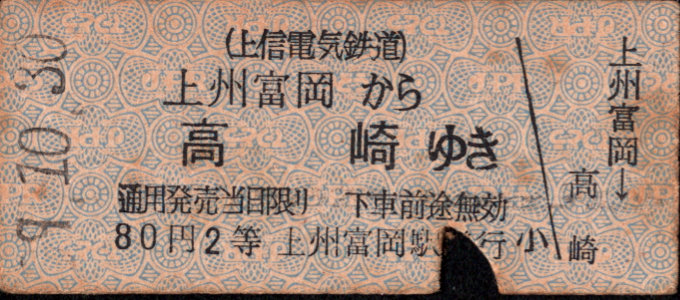 -9.10.30
(上信電気鉄道)
上州富岡から
高崎ゆき
通用発売当日限り 下車前途無効
80円2等 上州富岡駅 行 小
上州富岡→
高崎